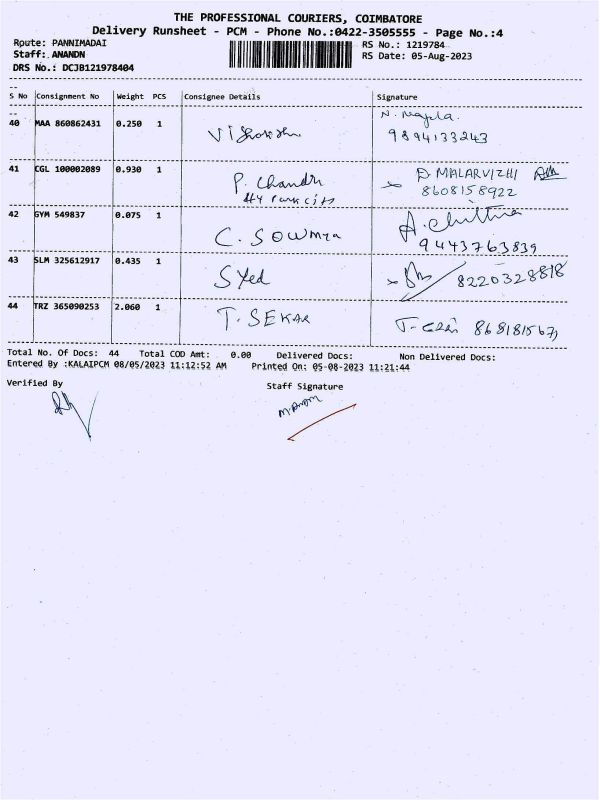 THE PROFESSIONAL COURIERS, COIMBATORE
Delivery Runsheet - PCM - Phone No.:0422-3505555 - Page No.:4
Route: PANNIMADAI
Staff: ANANDN
DRS No.: DCJB121978404
RS No.: 1219784
RS Date: 05-Aug-2023
S No Consignment No Weight PCS Consignee Details Signature
40 MAA 860862431 0.250 1
9894133243
41 CGL 100002089 0.930 1 P. Chandr D. MALARVIZHI
8608158922
42 GYM 549837 0.075 1 C. SOWMYA A. Chittra
9443763839
43 SLM 325612917 0.435 1 Syed 8220328818
44 TRZ 365090253 2.060 1 T. SEKAR
Total No. Of Docs: 44 Total COD Amt: 0.00 Delivered Docs: Non Delivered Docs:
Entered By :KALAIPCM 08/05/2023 11:12:52 AM Printed On: 05-08-2023 11:21:44
Verified By Staff Signature